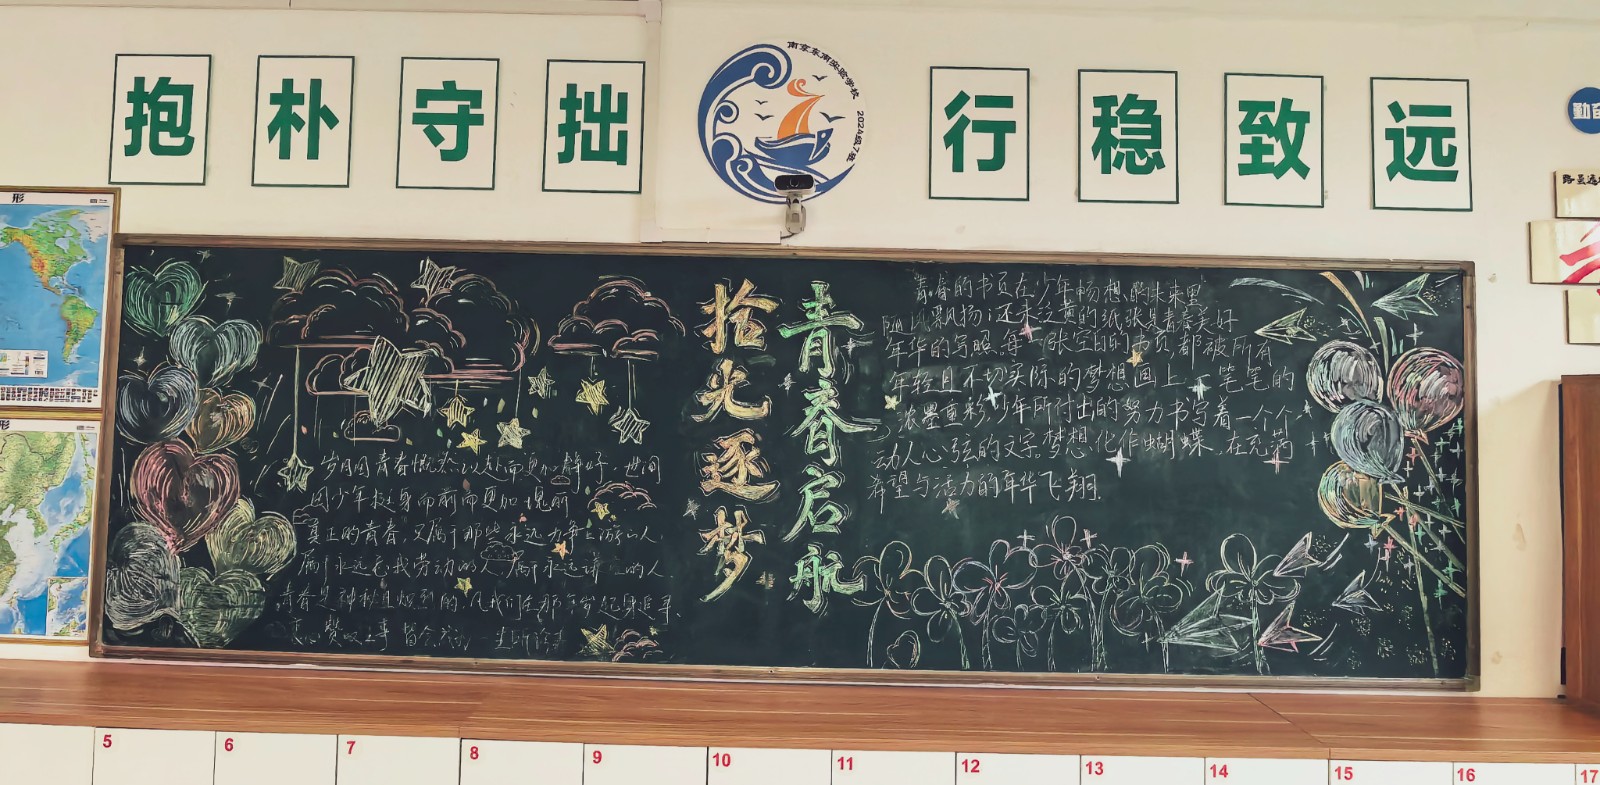 抱朴守拙
南京东南实验学校
2024级7班
行稳致远
勤奋
形
形
拾光逐梦
青春启航
岁月因青春慨然以赴而更加静好,世间
因少年挺身而前而更加瑰丽
真正的青春,又属于那些永远力争上游的人,
属于永远忘我劳动的人,属于永远谦虚的人.
青春是神秘且炽烈的,
青春的书页在少年畅想的未来里
随风飘扬;还未泛黄的纸张是青春美好
年华的写照.每一张空白的书页,都被所有
年轻且不切实际的梦想画上一笔笔的
浓墨重彩,少年所付出的努力书写着一个个
动人心弦的文字.梦想化作蝴蝶,在充满
希望与活力的年华飞翔.
5
6
7
8
9
10
11
12
13
14
15
16
17